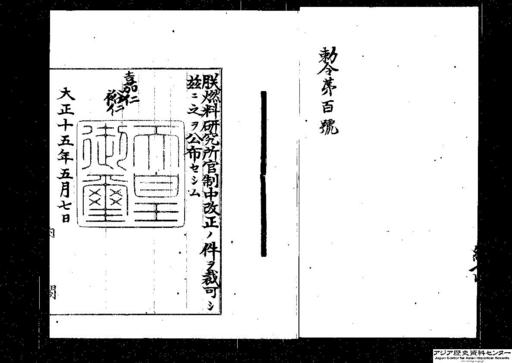 勅令第百號
朕燃料研究所官制中改正ノ件ヲ裁可シ
玆ニ之ヲ公布セシム
嘉仁
裕仁
天皇
御璽
大正十五年五月七日
内閣
アジア歴史資料センター
Japan Center for Asian Historical Records